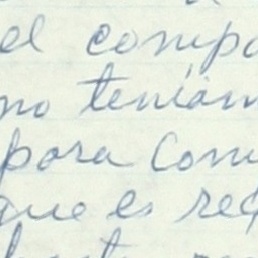 el compa
no teníam
para Com
que es req